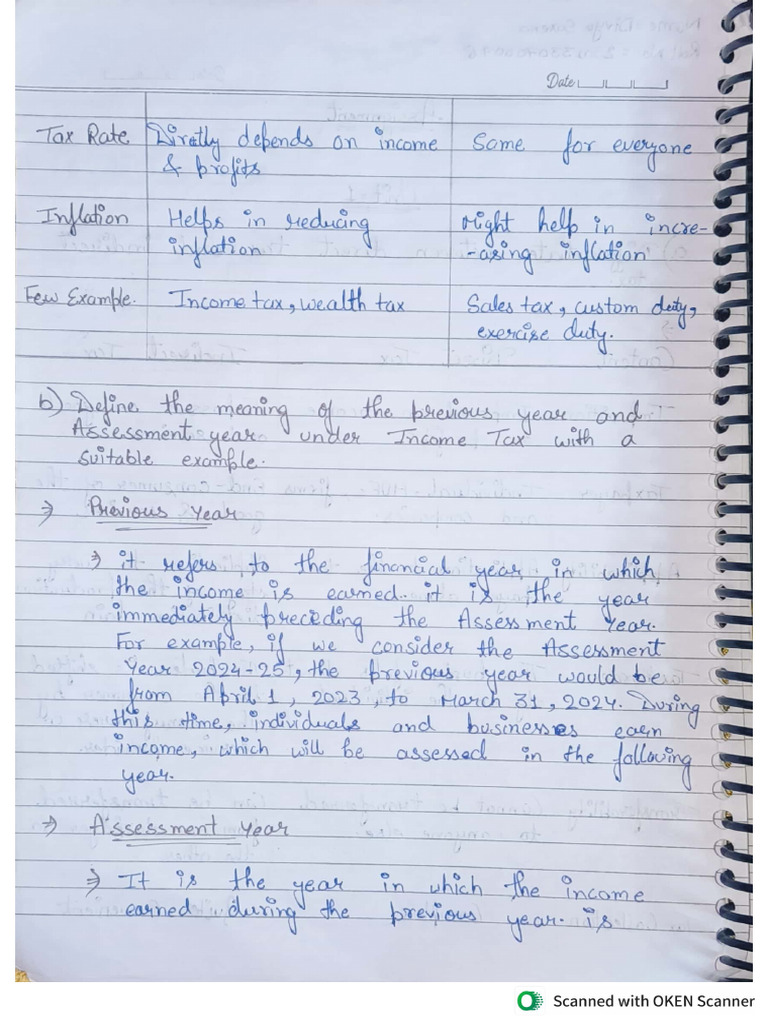 Date
Tax Rate Diretly depends on income Same for everyone
& profits
Inflation Helps in reducing might help in incre-
inflation -asing inflation
Few Example. Income tax, wealth tax Sales tax, custom duty,
exercise duty.
b) Define the meaning of the previous year and
Assessment year under Income Tax with a
suitable example.
⇒ Previous Year
⇒ it refers to the financial year in which
the income is earned. it is the year
immediately preceding the Assessment Year.
For example, if we consider the Assessment
Year 2024-25, the previous year would be
from April 1, 2023, to March 31, 2024. During
this time, individuals and businesses earn
income, which will be assessed in the following
year.
⇒ Assessment Year
⇒ It is the year in which the income
earned during the previous year is
Scanned with OKEN Scanner